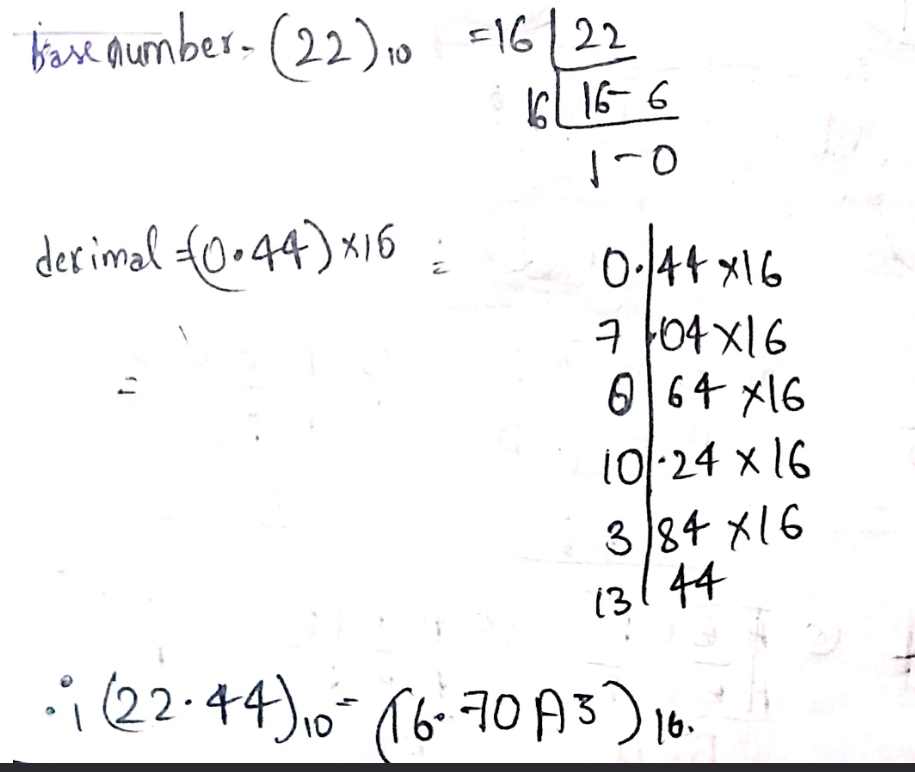 base number - (22)10 = 16 | 22
16 | 16 - 6
1 - 0
decimal = (0.44) × 16 = 0. | 44 × 16
7 | .04 × 16
0 | 64 × 16
10 | .24 × 16
3 | 84 × 16
13 | 44
=
∴ (22.44)10 = (16.70A3)16.